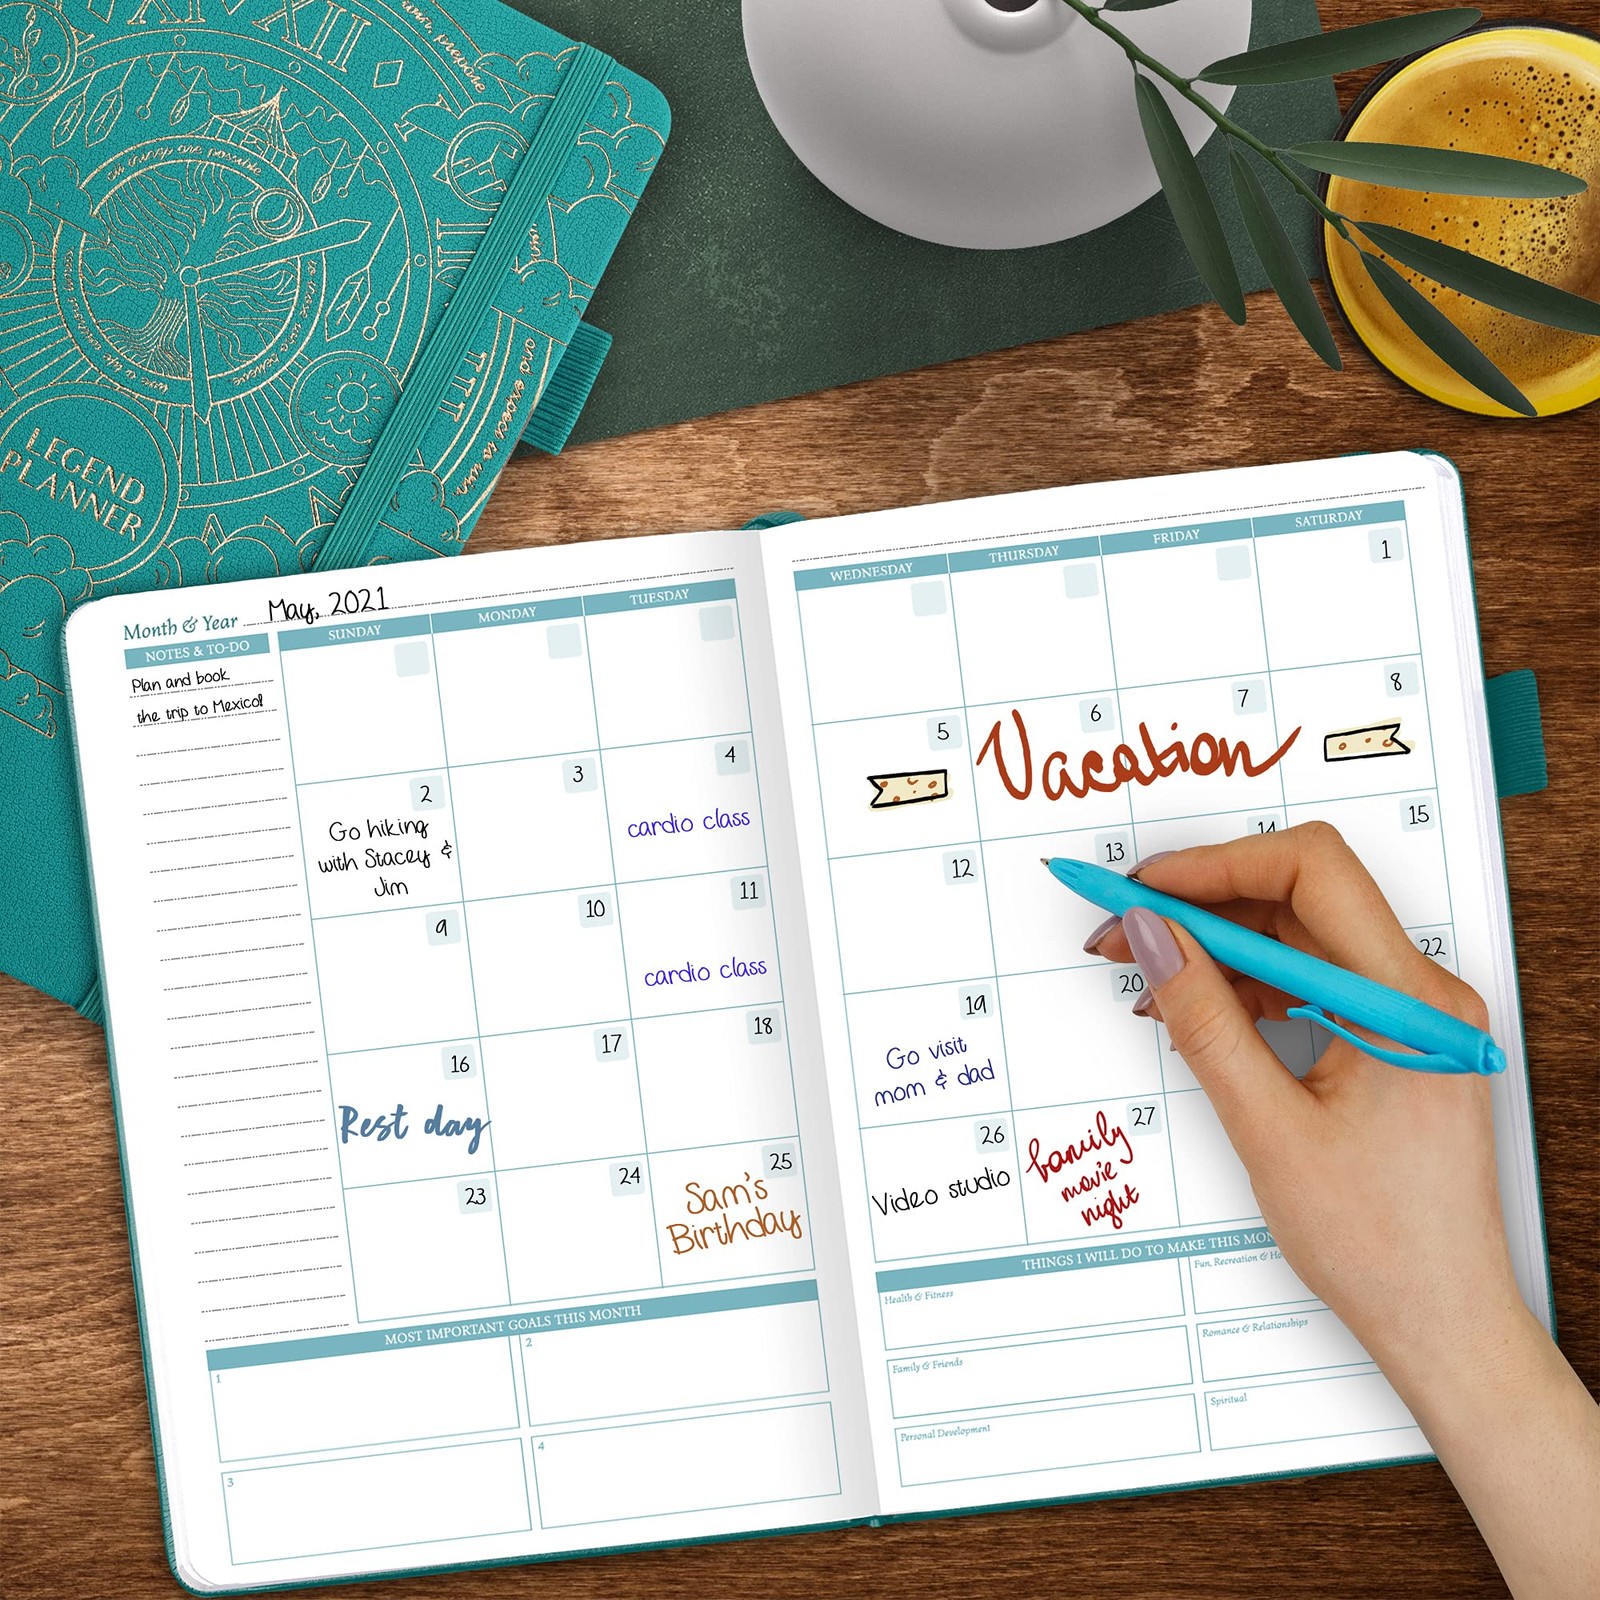 XII
win, prepare
all things are possible
LEGEND
PLANNER
and expect to win
Month & Year May, 2021
NOTES & TO-DO
Plan and book
the trip to Mexico!
SUNDAY MONDAY TUESDAY
2 3 4
Go hiking
with Stacey &
Jim
cardio class
9 10 11
cardio class
16 17 18
Rest day
23 24 25
Sam's
Birthday
MOST IMPORTANT GOALS THIS MONTH
1 2
3 4
WEDNESDAY THURSDAY FRIDAY SATURDAY
1
5 6 7 8
Vacation
12 13 14 15
19 20 22
Go visit
mom & dad
26 27
Video studio
family
movie
night
THINGS I WILL DO TO MAKE THIS MON
Health & Fitness Fun, Recreation & Ho
Family & Friends Romance & Relationships
Personal Development Spiritual